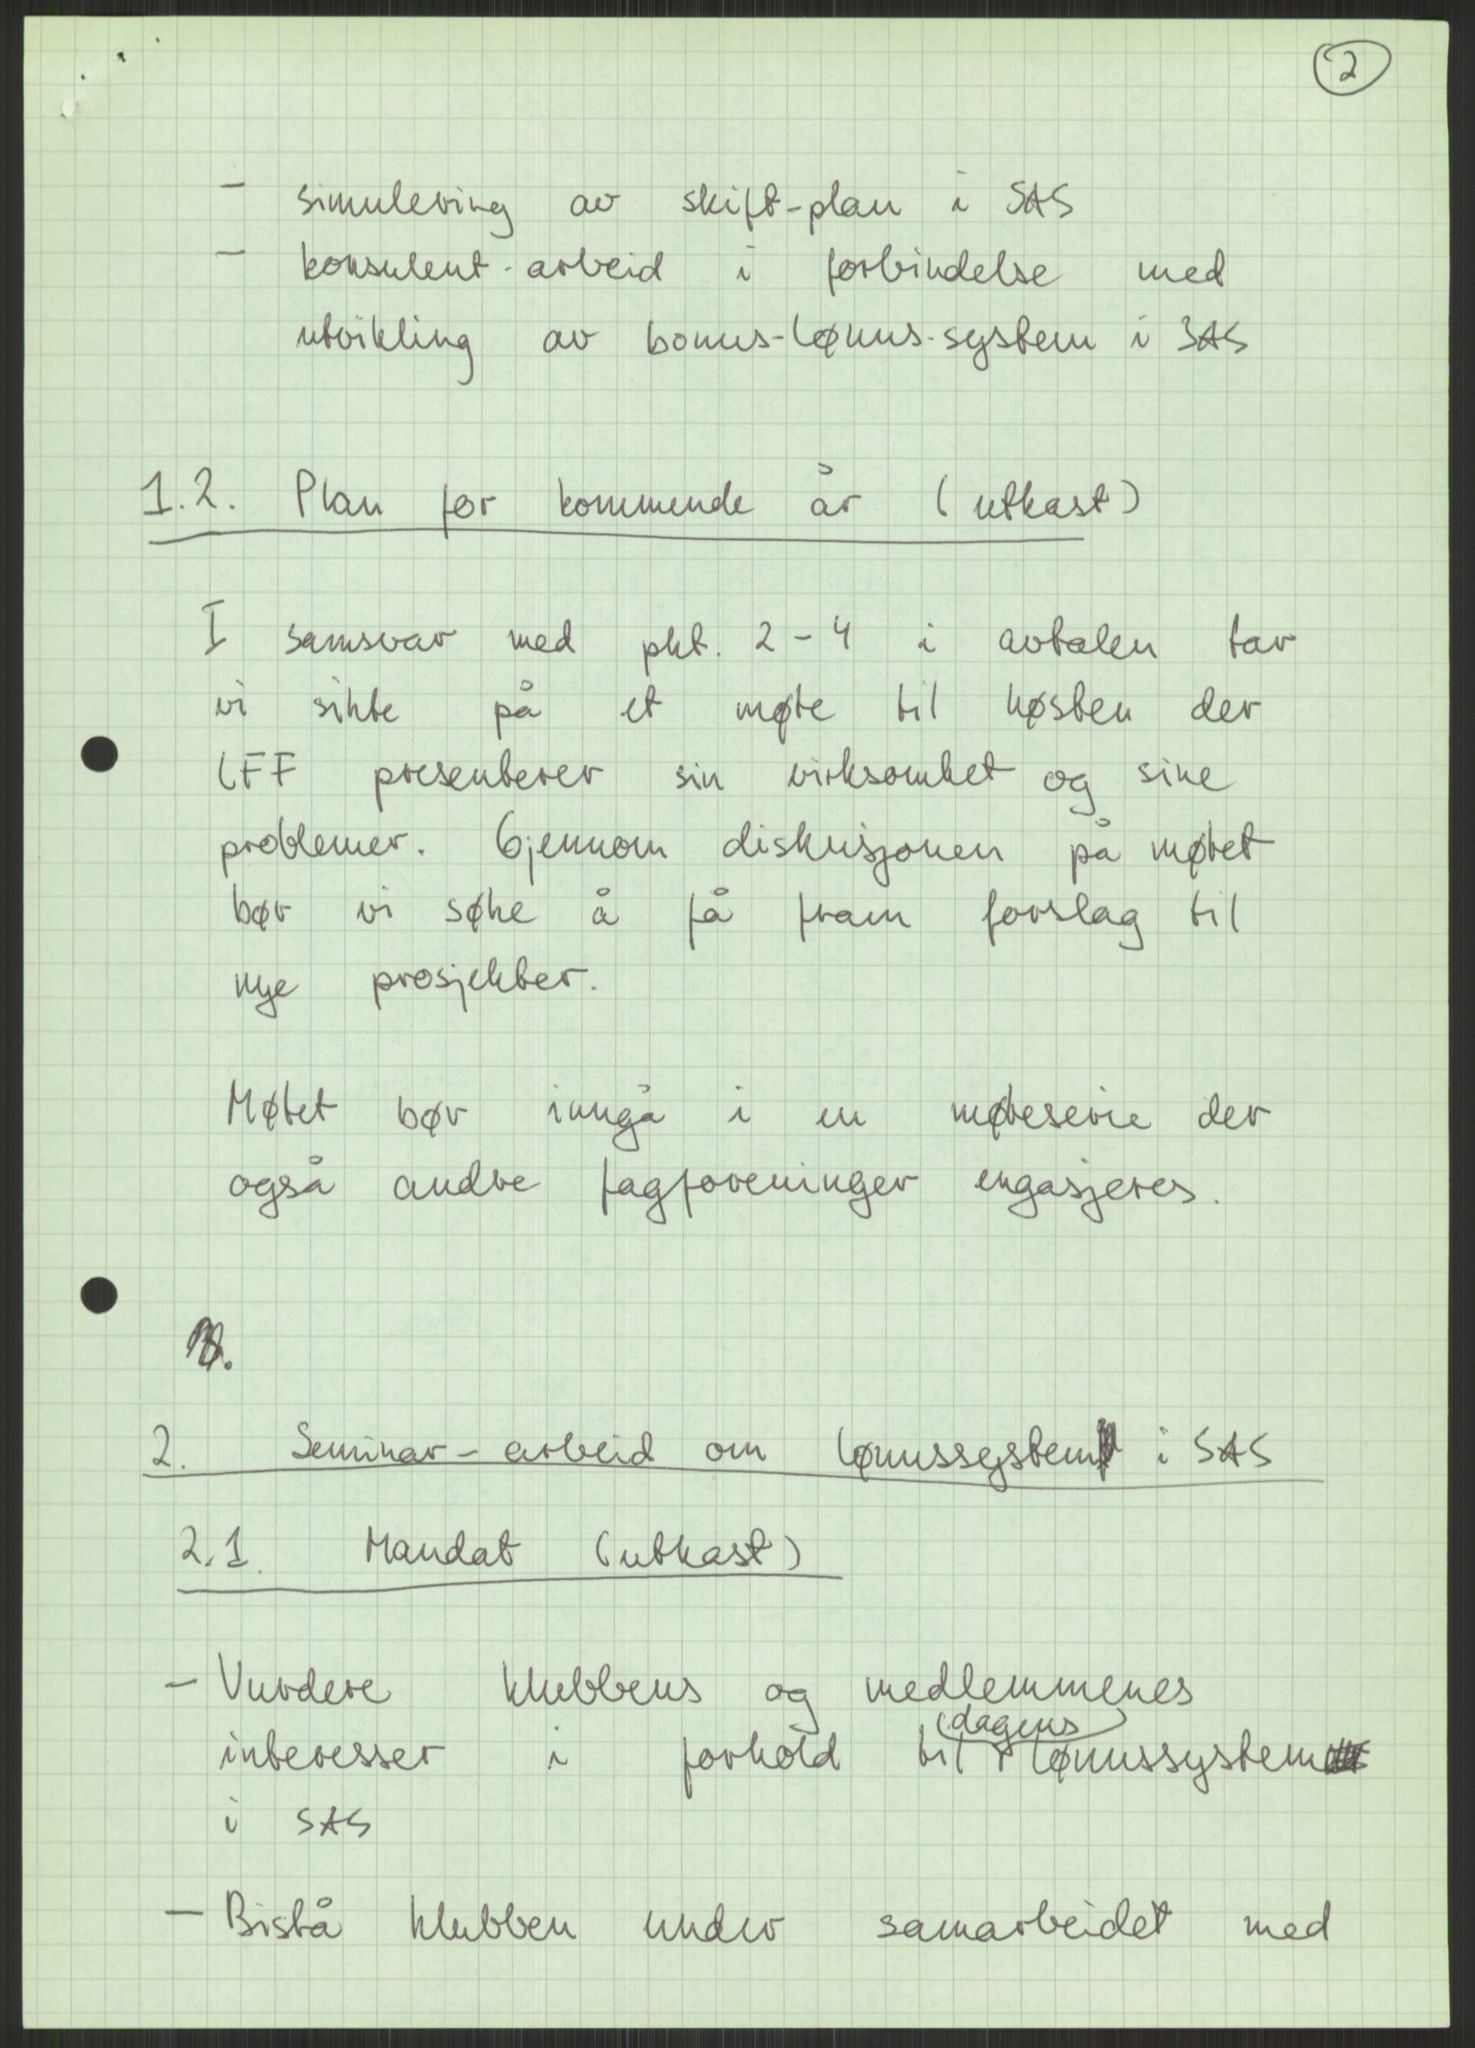 2
- simulering av skift-plan i SAS
- konsulent-arbeid i forbindelse med
utvikling av bonus-lønns-system i SAS
1.2. Plan for kommende år (utkast)
I samsvar med pkt. 2-4 i avtalen tar
vi sikte på et møte til høsten der
LFF presenterer sin virksomhet og sine
problemer. Gjennom diskusjonen på møtet
bør vi søke å få fram forslag til
nye prosjekter.
Møtet bør inngå i en møteserie der
også andre fagforeninger engasjeres.
2. Seminar-arbeid om lønnssystem i SAS
2.1. Mandat (utkast)
- Vurdere klubbens og medlemmenes
(dagens)
interesser i forhold til lønnssystem
i SAS
- Bistå klubben under samarbeidet med